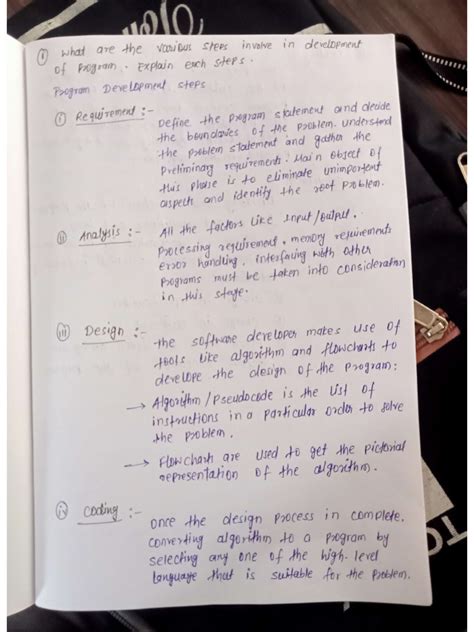 ① What are the various steps involve in development
of program. Explain each steps.
Program Development steps
ⓘ Requirement :- Define the program statement and decide
the boundaries of the problem. Understand
the problem statement and gather the
Preliminary requirements. Main object of
this phase is to eliminate unimportent
aspects and identify the root problem.
ⓘⓘ Analysis :- All the factors like Input/output,
Processing requirement, memory requirements
error handling, interfacing with other
Programs must be taken into consideration
in this stage.
ⓘⓘⓘ Design :- the software developer makes use of
tools like algorithm and flowcharts to
develope the design of the program:
→ Algorithm / Pseudocode is the list of
instructions in a particular order to solve
the problem.
→ Flowchart are used to get the pictorial
representation of the algorithm.
ⓘⓥ Coding :- Once the design process in complete.
converting algorithm to a program by
selecting any one of the high-level
language that is suitable for the problem.